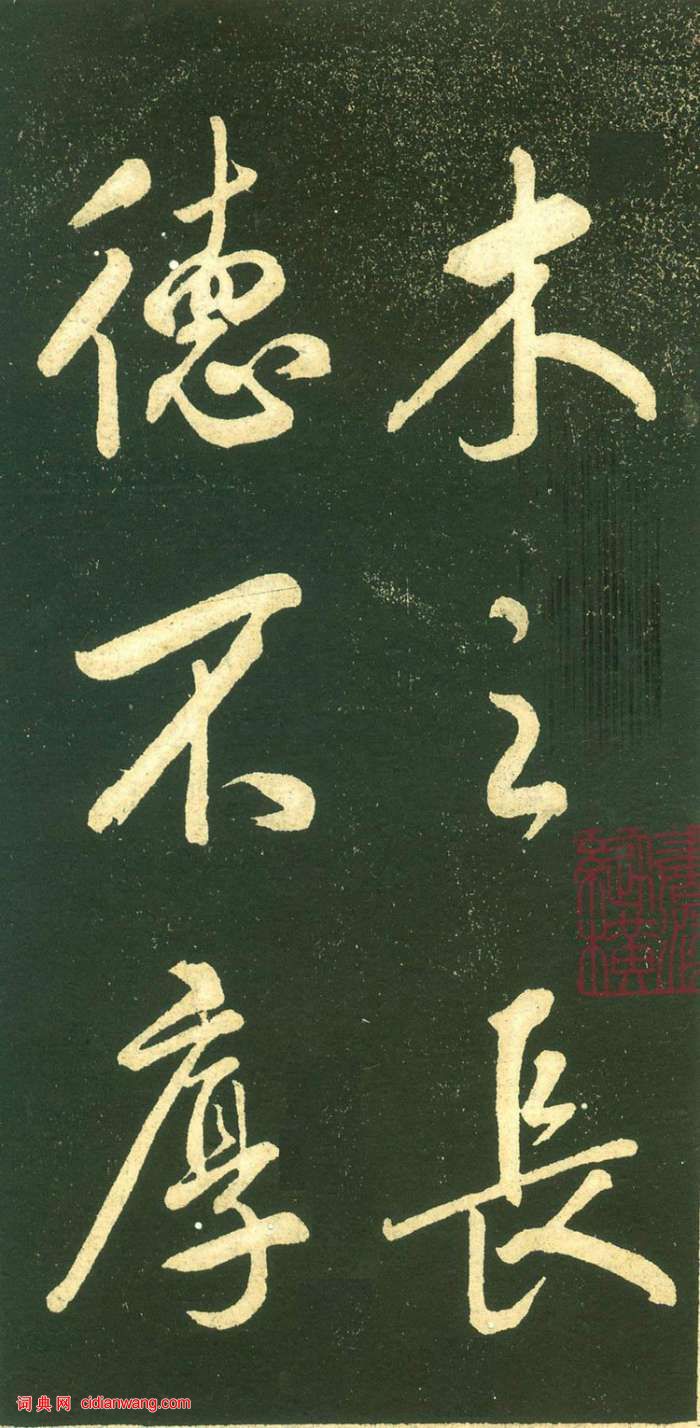 木之長
德不厚
词典网 cidianwang.com